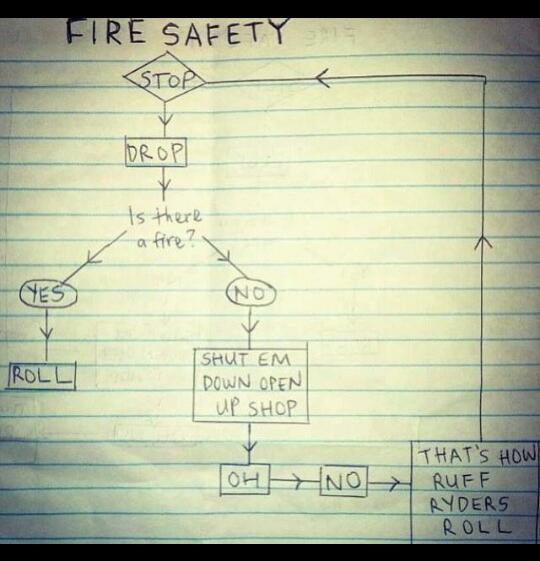 FIRE SAFETY
STOP
DROP
Is there
a fire?
YES
NO
ROLL
SHUT EM
DOWN OPEN
UP SHOP
OH
NO
THAT'S HOW
RUFF
RYDERS
ROLL